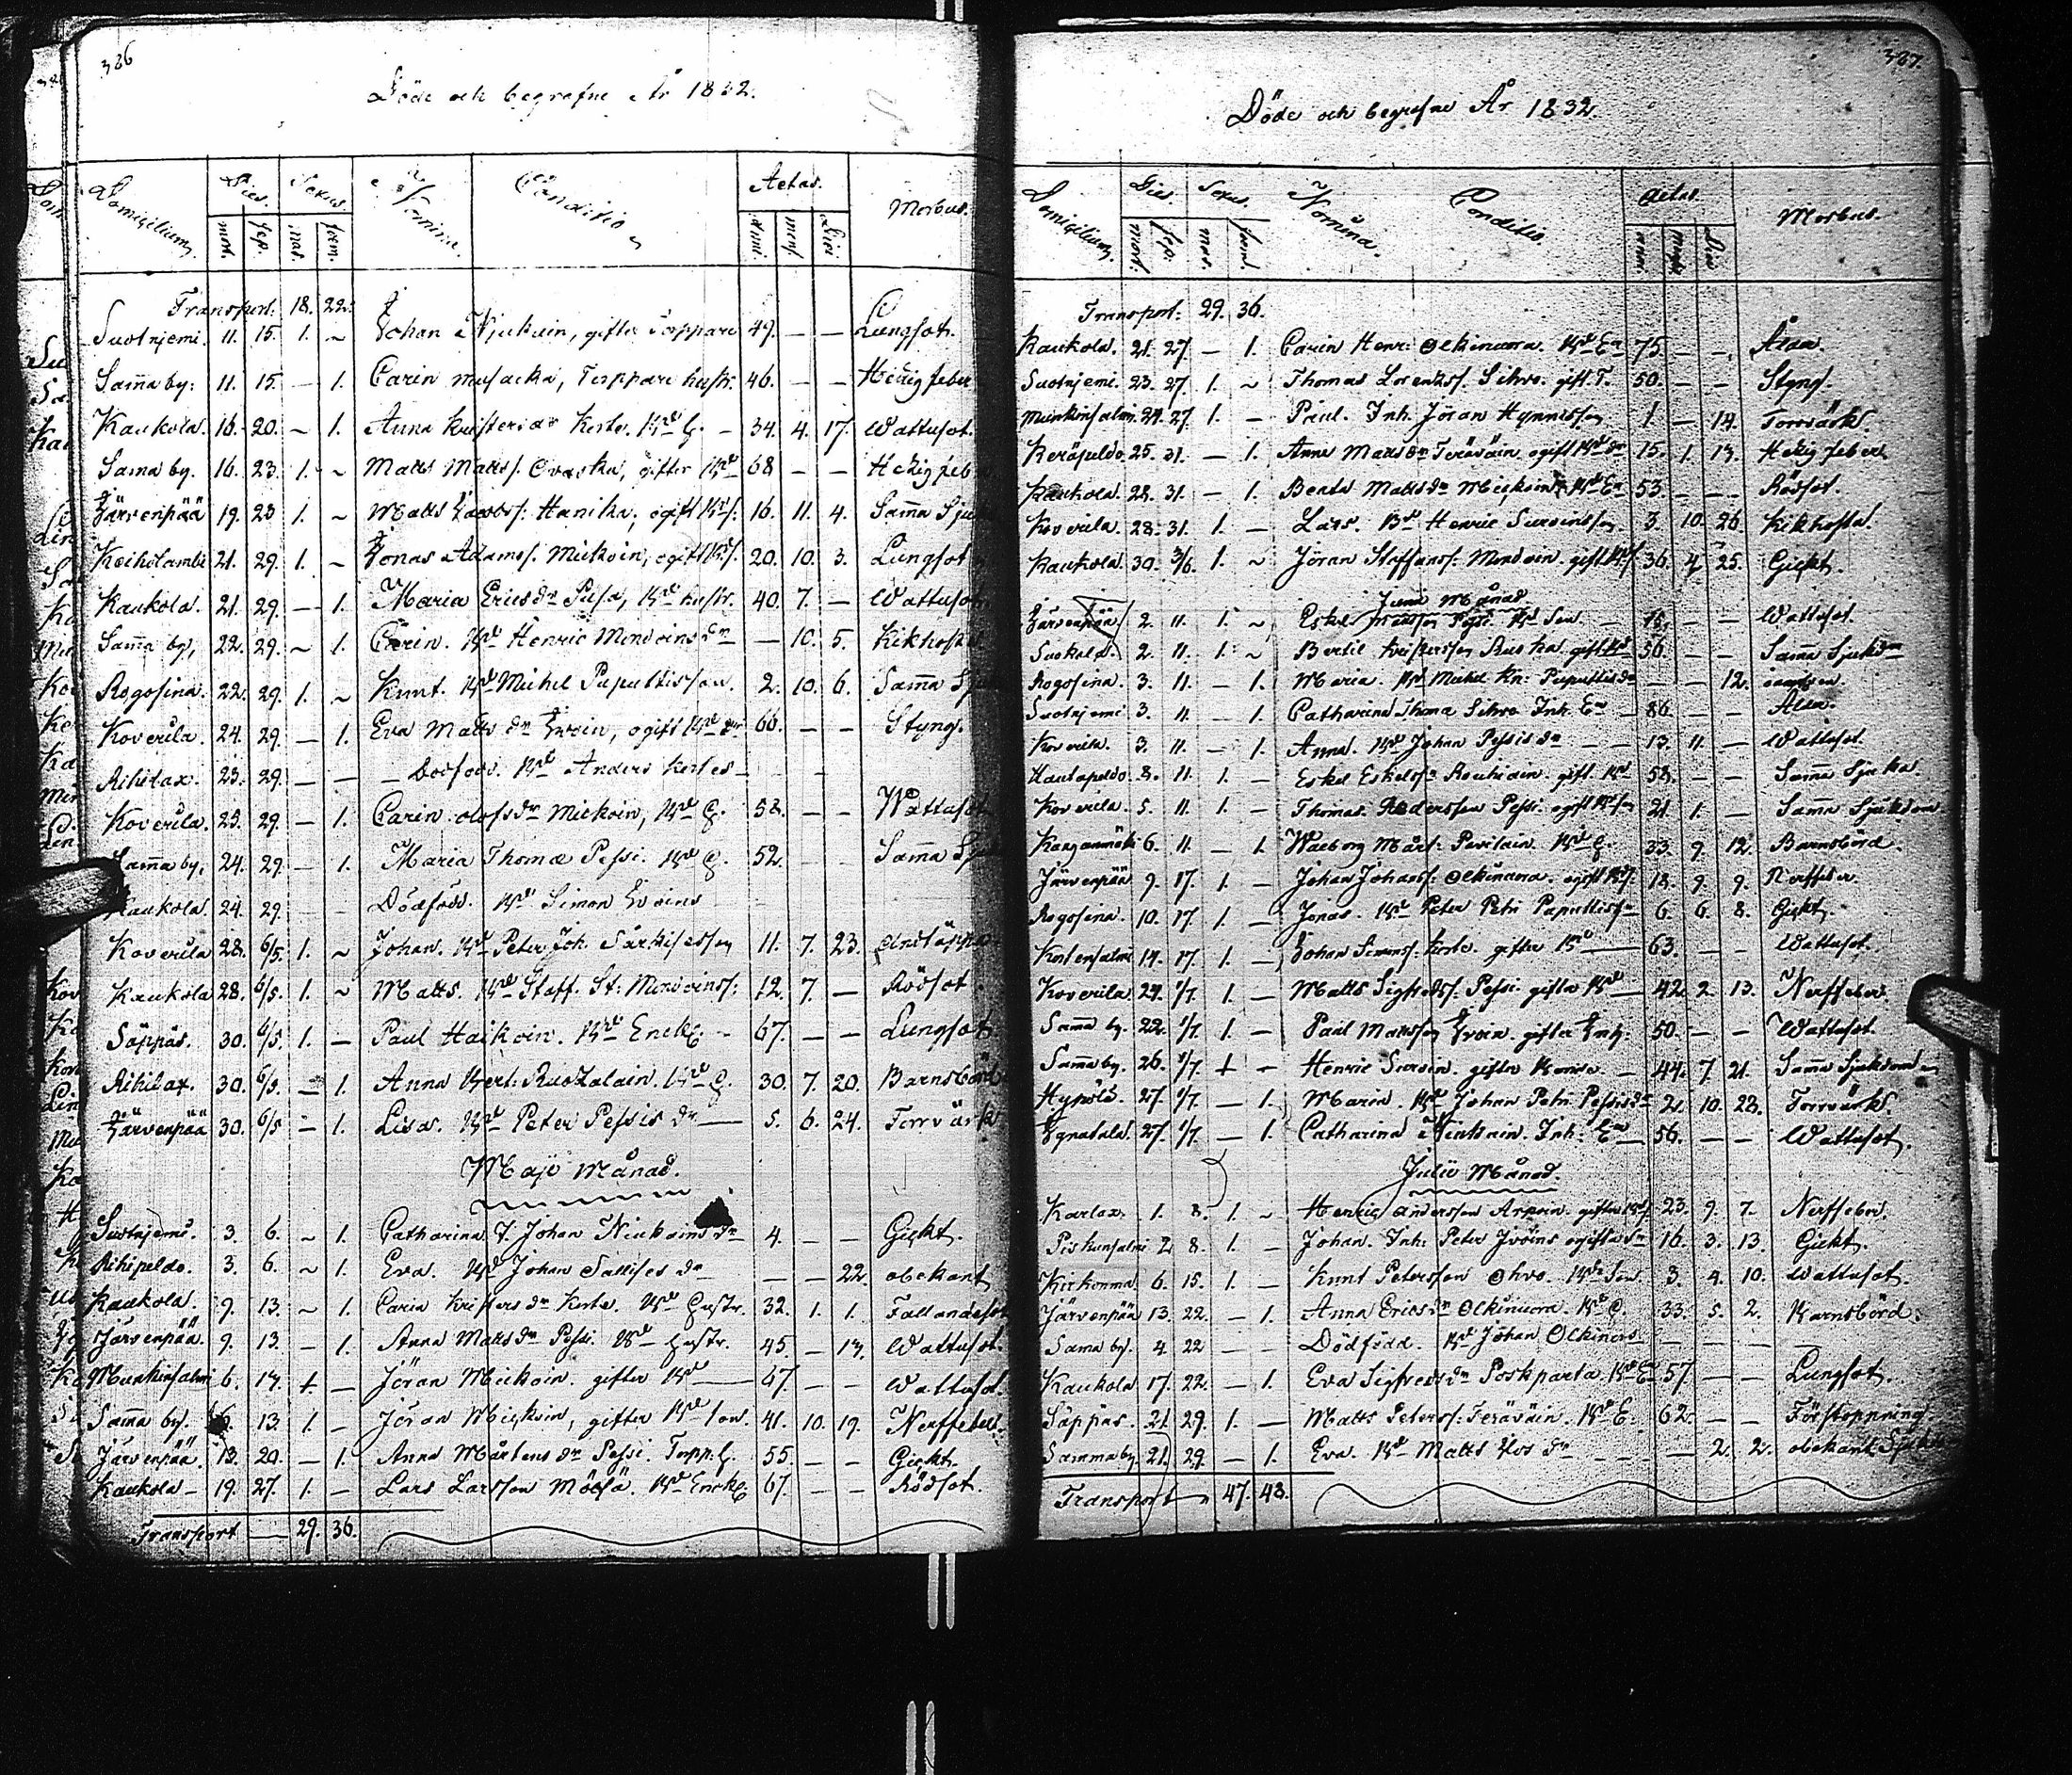 326
Döde och begrafne År 1832.
Domicilium. Dies. Sexus. Nomina. Conditio Aetas. Morbus.
mort. sep. mas. foem. anni. mens. dies
Transport. 18. 22.
Suotnjemi. 11. 15. 1. ~ Johan Njukuin, gifter Torppare 49. — — Lungsot.
Sam̄a by: 11. 15. — 1. Carin Musacka, Torppare hustr. 46. — — Hetzig feber
Kaukola. 16. 20. ~ 1. Anna Kristersdr Kerto. Bd H. 34. 4. 17. Wattusot.
Sama by. 16. 23. 1. ~ Matts Matts. Craska, gifter Bd 68 — —
Järvenpää 19. 23 1. ~ Matts Jacobs: Hanika, ogift 16. 11. 4. Sam̄a
Koiholambi 21. 29. 1. ~ Jonas Adams. Mickoin, ogift 20. 10. 3. Lungsot
Kaukola. 21. 29. — 1. Maria Ericsdr Pusa, Bd hustr. 40. 7. — Wattusot
Sam̄a by, 22. 29. ~ 1. Carin. Bd Henric Mondoins dr — 10. 5. Kikhosta
Rogosina. 22. 29. 1. ~ Knut. Bd Michel Paputtisson. 2. 10. 6. Sam̄a
Koverila. 24. 29. — 1. Eva Matts dr Ivoin, ogift Bd 66. — — Styng.
Rihilax. 23. 29. — — Dödfödd. Bd Anders Kertes — —
Koverila. 23. 29. — 1. Carin Olofsdr Mickoin, Bd H. 58. — — Wattusot
Sam̄a by, 24. 29. — 1. Maria Thomæ Pessi. Bd H. 52. — Sam̄a
Kaukola. 24. 29. Dödfödd. Bd Simon Ivoins
Koverila 28. 6/5. 1. ~ Johan. Bd Peter Joh. Särkisesson 11. 7. 23. Andtäppa
Kaukola 28. 6/5. 1. ~ Matts. Bd Staff. St: Mondoins: 12. 7. — Rödsot
Säppäs. 30. 6/5. 1. — Paul Haikoin. Bd Enckl. 67. — — Lungsot
Rihilax. 30. 6/5. — 1. Anna Bert: Ruotzalain. Bd H. 30. 7. 20. Barnsbörd
Järvenpää 30. 6/5 — 1. Lisa. Bd Peter Pessis dr — 5. 6. 24. Torrvärk
Maji Månad.
Suotnjemi. 3. 6. ~ 1. Catharina T. Johan Niukoins dr 4. — — Gickt.
Rihipeldo. 3. 6. ~ 1. Eva. Bd Johan Sallises dr — — 22. obekant
Kaukola. 9. 13. ~ 1. Carin Kristersdr Kerto. Bd Hustr. 32. 1. 1. Fallandesot
Järvenpää. 9. 13. — 1. Anna Mattsdr Pessi. Bd Hustr. 45. — 17. Wattusot.
Munkinsalmi 6. 17. 1. — Jöran Mickoin. gifter Bd — 67. — — Wattusot.
Sam̄a by. 13. 1. — Jöran Mickoin, gifter Bd son. 41. 10. 19. Nerffeber.
Järvenpää. 13. 20. — 1. Anna Mårtens dr Pessi. Topp. H. 55. — — Gickt.
Kaukola — 19. 27. 1. — Lars Larsson Mölsä. Bd Enckl 67. — — Rödsot.
Transport — 29. 36.
327.
Döde och begrafne År 1832.
Domicilium. Dies. Sexus. Nomina. Conditio. Aetas. Morbus.
mort. sep: mas. foem. anni. mens. dies
Transport: 29. 36.
Kaukola. 21. 27. — 1. Carin Henr: Olkinuora. Bd Ea 75. — — Ålder.
Suotnjemi. 23. 27. 1. ~ Thomas Lorents. Sihvo. gift. T. 50. — — Styng.
Munkinsalmi. 24. 27. 1. — Paul. Inh. Jöran Hynnisson 1. — 14. Torrvärk.
Keräpeldo. 25. 31. — 1. Anna Mattsdr Teräväin ogift Bd dr 15. 1. 17. Hetzig feber
Kaukola. 28. 31. — 1. Beata Mattsdr Mickoin. Bd Ea 53. — — Rödsot.
Koverila. 28. 31. 1. — Lars. Bd Henric Suroinsson 3. 10. 26. Kikhosta.
Kaukola. 30. 3/6. 1. ~ Jöran Staffans: Mondoin. gift 36. 4. 25. Gickt.
Juni Månad
Järvenpää 2. 11. 1. ~ Eskel Mattson Pessi. Bd Son. — Wattusot.
Suokola. 2. 11. 1. ~ Bertil Kristersson Ruska. gift Bd 56. — — Sam̄a Sjukdm
Rogosina. 3. 11. — 1. Maria. Bd Michel Kn: Paputtis dr — — 12.
Suotnjemi 3. 11. — 1. Catharina Thoma Sihvo Inh. Ea 86. — — Ålder.
Koverila. 3. 11. — 1. Anna. Bd Johan Pessis dr — 13. 11. — Wattusot.
Hautapeldo 8. 11. 1. — Eskel Eskelss. Rouhiain. gift. Bd 58. — — Sam̄a Sjukd.
Koverila. 5. 11. 1. — Thomas Andersson Pessi. ogift 21. 1. — Sam̄a Sjukdom
Kangasmäki 6. 11. — 1. Walborg Mårt: Pavilain. Bd H. 33. 9. 12. Barnsbörd.
Järvenpää 9. 17. 1. — Johan Johans. Olkinuora. ogift 18. 9. 9. Nerffeber.
Rogosina. 10. 17. 1. — Jonas. Bd Peter Petri Paputtiss 6. 6. 8. Gickt.
Kortensalmi 14. 17. 1. — Johan Simons: Kerto. gifter Bd — 63. — — Wattusot.
Koverila 24. 1/7. 1. — Matts Sigfreds. Pessi. gifter Bd — 42. 2. 13. Nerffeber
Sam̄a by. 22. 1/7. 1. — Paul Mattsson Ivoin. gifter Inh. 50. — — Wattusot.
Sam̄a by. 26. 1/7. 1 — Henric Suroin. gifter — 44. 7. 21. Sam̄a Sjukdom
Hypölä. 27. 1/7. — 1. Maria. Bd Johan Petri Pessis dr 2. 10. 28. Torrvärk.
Ignatala. 27. 1/7. — 1. Catharina Niukkain. Inh: Ea 56. — — Wattusot.
Julii Månad.
Karlax. 1. 8. 1. ~ Henric Andersson Arpoin. gifter 23. 9. 7. Nerffeber.
Piskunsalmi 2. 8. 1. — Johan. Inh: Peter Ivoins ogifta Sn 16. 3. 13. Gickt.
Kirkonma. 6. 15. 1. — Knut Petersson Ohvo. Bd Son. 3. 4. 10. Wattusot.
Järvenpää 13. 22. — 1. Anna Ericsdr Olkinuora. Bd H. 33. 5. 2. Barnsbörd.
Sama by. 4. 22 — Dödfödd. Bd Johan Olkinors — — —
Kaukola 17. 22. — 1. Eva Sigfredsdr Poskparta. Bd E 57. — — Lungsot.
Säppäs. 21. 29. 1. — Matts Peters. Teräväin. Bd E. 62. — — Förstoppning
Samma by. 21. 29. — 1. Eva. Bd Matts dr — 2. 2. obekant
Transport 47. 43.